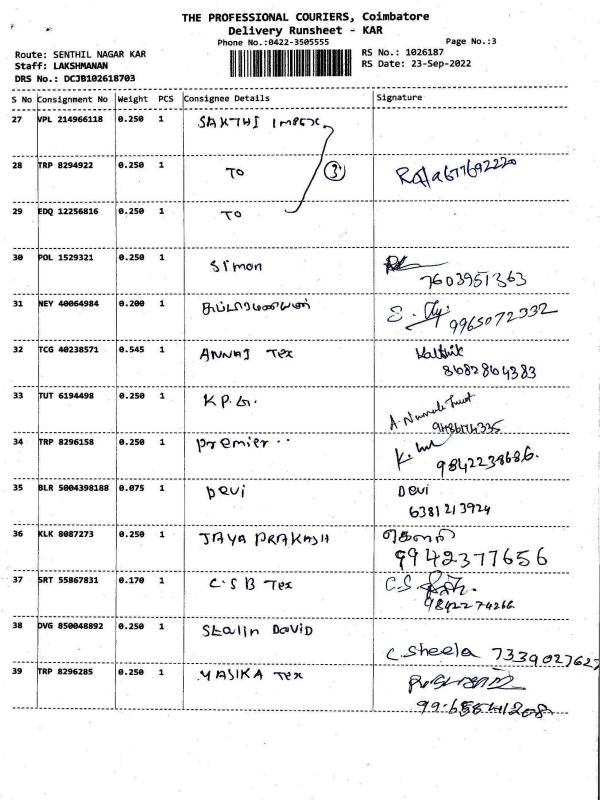 THE PROFESSIONAL COURIERS, Coimbatore
Delivery Runsheet - KAR
Phone No.:0422-3505555
Page No.:3
Route: SENTHIL NAGAR KAR
RS No.: 1026187
Staff: LAKSHMANAN
RS Date: 23-Sep-2022
DRS No.: DCJB102618703
S No Consignment No Weight PCS Consignee Details Signature
27 VPL 214966118 0.250 1 SAKTHI Impex
28 TRP 8294922 0.250 1 TO 3
29 EDQ 12256816 0.250 1 TO
30 POL 1529321 0.250 1 Simon
7603951363
31 NEY 40064984 0.200 1
9965072332
32 TCG 40238571 0.545 1 ANNAI Tex Kathik
8682864383
33 TUT 6194498 0.250 1 K.P.G.
34 TRP 8296158 0.250 1 Premier..
9842238686.
35 BLR 5004398188 0.075 1 Devi Devi
6381213924
36 KLK 8087273 0.250 1 JAYA PRAKASH
9942377656
37 SRT 55867831 0.170 1 C.S B Tex C.S.
9842274266
38 DVG 850048892 0.250 1 Stalin David
C.Sheela 7339027627
39 TRP 8296285 0.250 1 YASIKA Tex